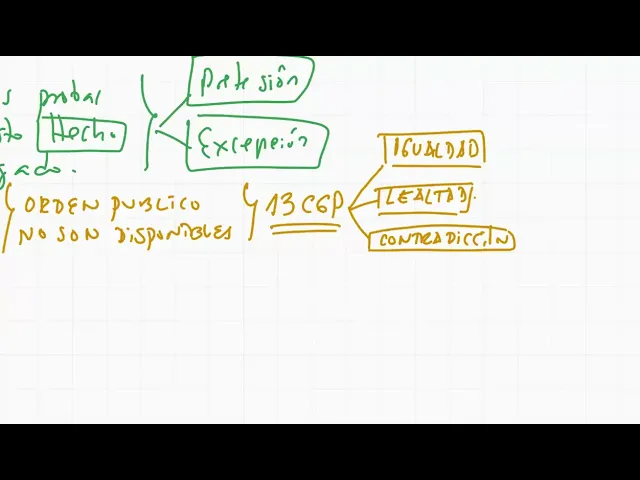 Pretensión
s probar
Hecho.
Excepción
gado.
IGUALDAD
ORDEN PUBLICO
13 CGP
LEALTAD
NO SON DISPONIBLES
CONTRADICCIÓN